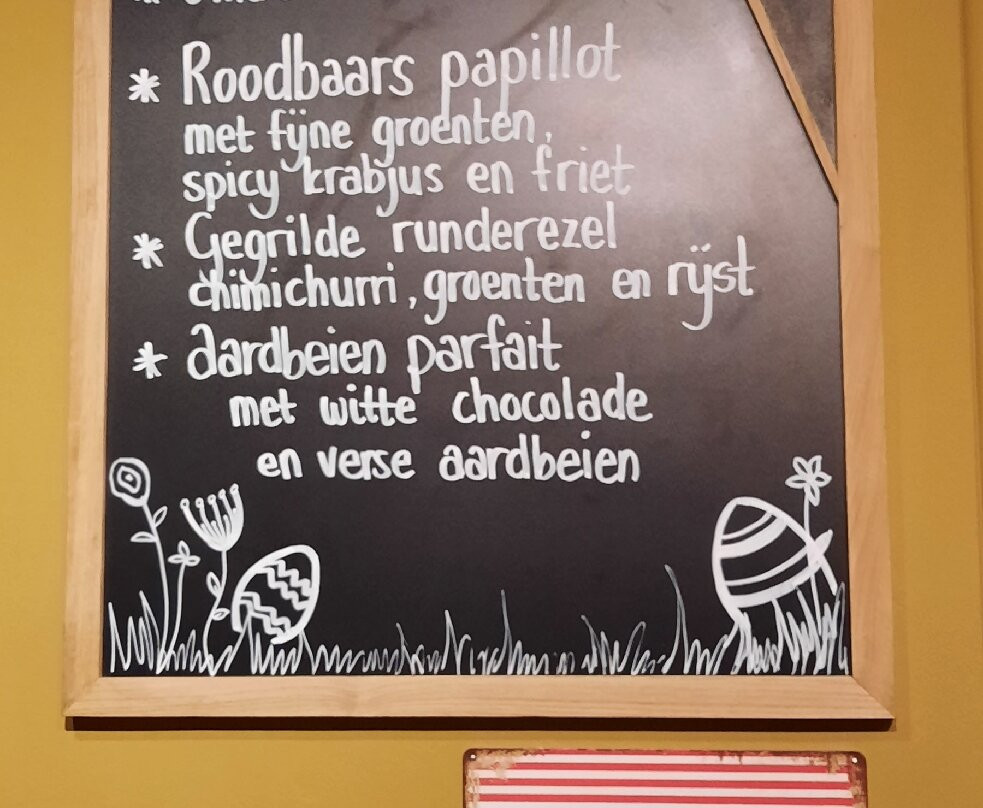 * Roodbaars papillot
met fijne groenten,
spicy krabjus en friet
* Gegrilde runderezel
chimichurri, groenten en rijst
* aardbeien parfait
met witte chocolade
en verse aardbeien